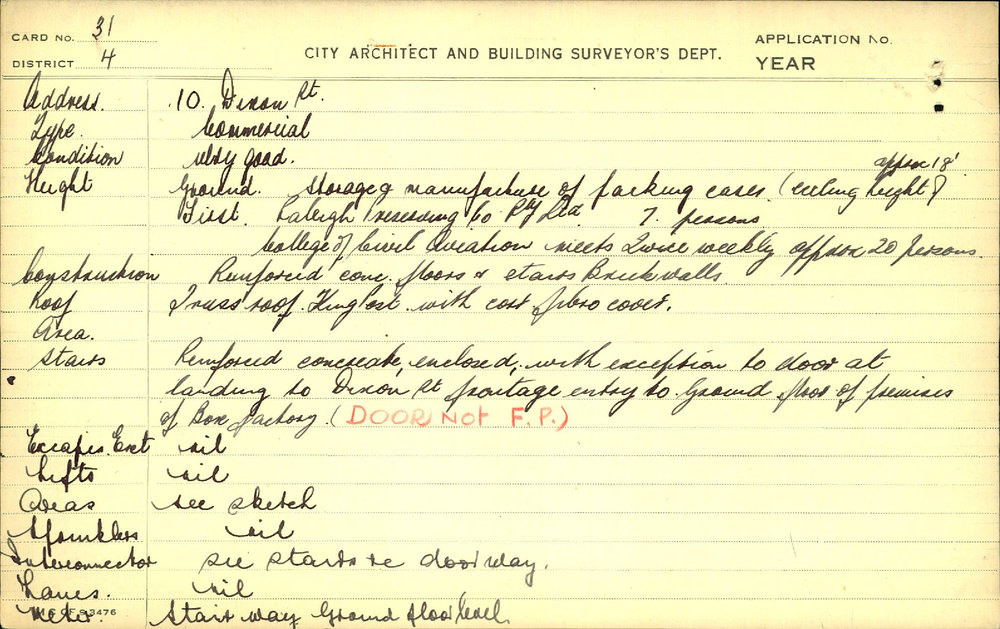 CARD NO. 31
CITY ARCHITECT AND BUILDING SURVEYOR'S DEPT.
APPLICATION NO.
DISTRICT 4
YEAR
Address. 10. Dixon St.
Type. Commercial
Condition very good.
approx 18'
Height Ground. Storage & manufacture of packing cases (ceiling height)
First. Raleigh Preserving Co Pty Ltd 7. persons
College of Civil Aviation meets twice weekly approx 20 persons.
Construction Reinforced conc. floors & stairs Brick walls
Roof Truss roof. King Post. with corr. fibro cover.
Area.
Stairs Reinforced concrete, enclosed, with exception to door at
landing to Dixon St frontage entry to Ground floor of premises
of Box factory. (DOOR NOT F.P.)
Escapes. Ext nil
Lifts nil
Areas see sketch
Sprinklers nil
Interconnector see stairs re doorway.
Lanes. nil
S 3476
Meter. Stair way Ground floor level.